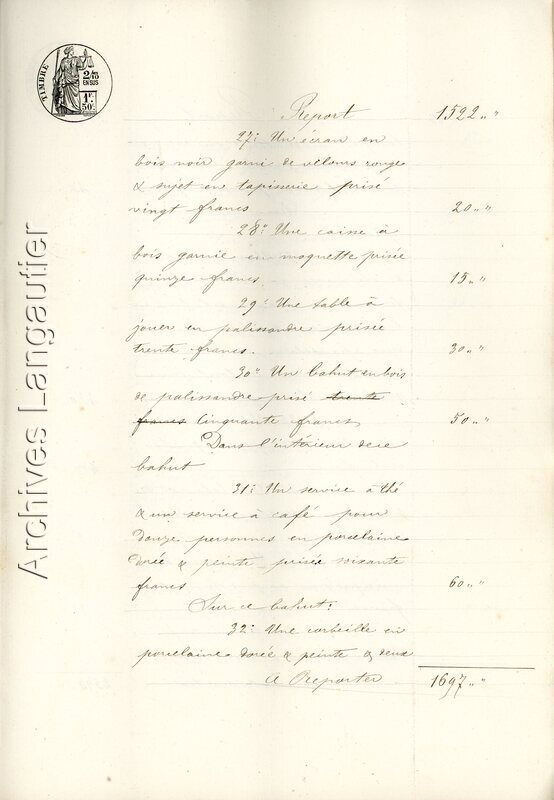 TIMBRE
2/10
EN SUS
1F.
50c.
Archives Langautier
Report 1522 „ "
27° Un écran en
bois noir garni de velours rouge
& sujet en tapisserie prisé
vingt francs 20 „ "
28° Une caisse à
bois garnie en moquette prisée
quinze francs 15 „ "
29° Une table à
jouer en palissandre prisée
trente francs. 30 „ "
30° Un bahut en bois
de palissandre prisé trente
francs Cinquante francs 50 „ "
Dans l'intérieur de ce
bahut
31° Un service à thé
& un service à café pour
douze personnes en porcelaine
dorée & peinte prisée soixante
francs 60 „ "
Sur ce bahut:
32° Une corbeille en
porcelaine dorée & peinte & deux
A Reporter 1697 „ "